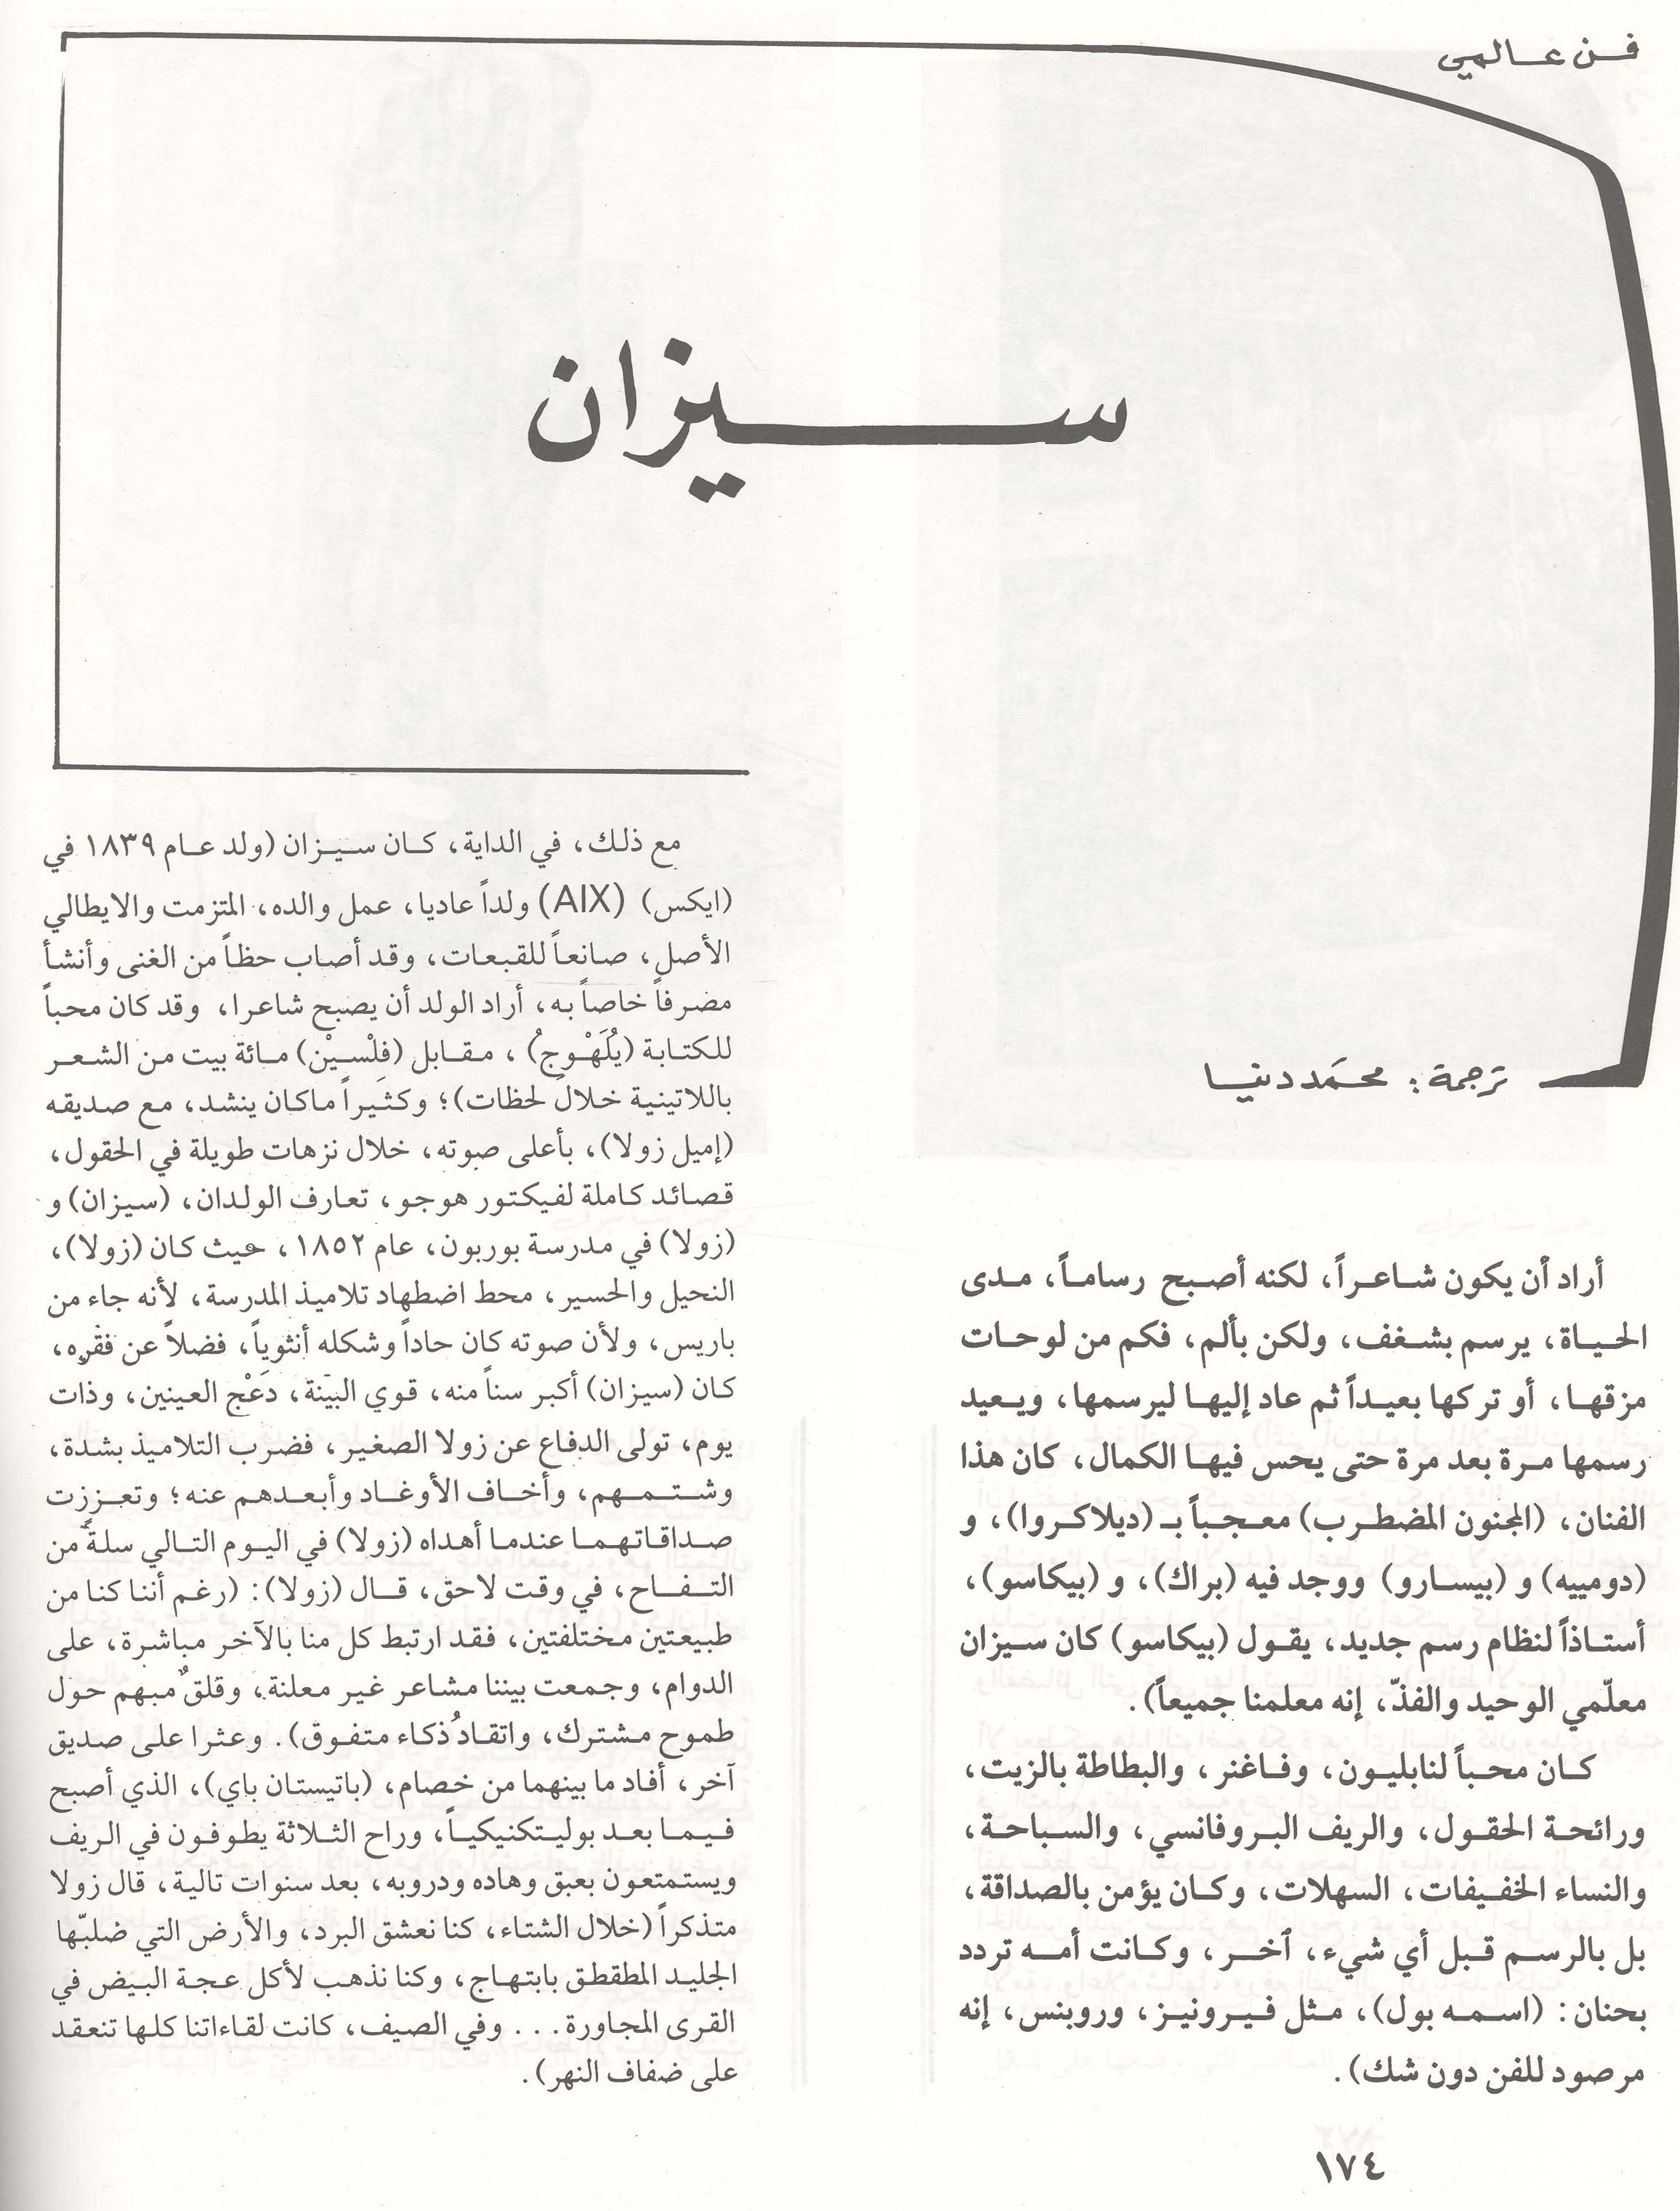 فن عالمي
سيزان
ترجمة: محمَد دنيا
أراد أن يكون شاعراً، لكنه أصبح رساماً، مدى
الحياة، يرسم بشغف، ولكن بألم، فكم من لوحات
مزقها، أو تركها بعيداً ثم عاد إليها ليرسمها، ويعيد
رسمها مرة بعد مرة حتى يحس فيها الكمال، كان هذا
الفنان، (المجنون المضطرب) معجباً بـ (ديلاكروا)، و
(دومييه) و (بيسارو) ووجد فيه (براك)، و (بيكاسو)،
أستاذاً لنظام رسم جديد، يقول (بيكاسو) كان سيزان
معلّمي الوحيد والفذّ، إنه معلمنا جميعاً).
كان محباً لنابليون، وفاغنر، والبطاطة بالزيت،
ورائحة الحقول، والريف البروفانسي، والسباحة،
والنساء الخفيفات، السهلات، وكان يؤمن بالصداقة،
بل بالرسم قبل أي شيء، آخر، وكانت أمه تردد
بحنان: (اسمه بول)، مثل فيرونيز، وروبنس، إنه
مرصود للفن دون شك).
مع ذلك، في الداية، كان سيزان (ولد عام ١٨٣٩ في
(ايكس) (AIX) ولداً عاديا، عمل والده، المتزمت والايطالي
الأصل، صانعاً للقبعات، وقد أصاب حظاً من الغنى وأنشأ
مضرفاً خاصاً به، أراد الولد أن يصبح شاعرا، وقد كان محباً
للكتابة (يُلَهْوِجُ)، مقابل (فلْسيْن) مائة بيت من الشعر
باللاتينية خلالَ لحظات)؛ وكثيراً ماكان ينشد، مع صديقه
(إميل زولا)، بأعلى صوته، خلال نزهات طويلة في الحقول،
قصائد كاملة لفيكتور هوجو، تعارف الولدان، (سيزان) و
(زولا) في مدرسة بوربون، عام ١٨٥٢، حيث كان (زولا)،
النحيل والحسير، محط اضطهاد تلاميذ المدرسة، لأنه جاء من
باريس، ولأن صوته كان حاداً وشكله أنثوياً، فضلاً عن فقره،
كان (سيزان) أكبر سناً منه، قوي البينة، دَعْج العينين، وذات
يوم، تولى الدفاع عن زولا الصغير، فضرب التلاميذ بشدة،
وشتمهم، وأخاف الأوغاد وأبعدهم عنه؛ وتعززت
صداقاتهما عندما أهداه (زولا) في اليوم التالي سلةً من
التفاح، في وقت لاحق، قال (زولا): (رغم أننا كنا من
طبيعتين مختلفتين، فقد ارتبط كل منا بالآخر مباشرة، على
الدوام، وجمعت بيننا مشاعر غير معلنة، وقلقٌ مبهم حول
طموح مشترك، واتقادُ ذكاء متفوق). وعثرا على صديق
آخر، أفاد ما بينهما من خصام، (باتيستان باي)، الذي أصبح
فيما بعد بوليتكنيكياً، وراح الثلاثة يطوفون في الريف
ويستمتعون بعبق وهاده ودروبه، بعد سنوات تالية، قال زولا
متذكراً (خلال الشتاء، كنا نعشق البرد، والأرض التي ضلبّها
الجليد المطقطق بابتهاج، وكنا نذهب لأكل عجة البيض في
القرى المجاورة... وفي الصيف، كانت لقاءاتنا كلها تنعقد
على ضفاف النهر).
١٧٤